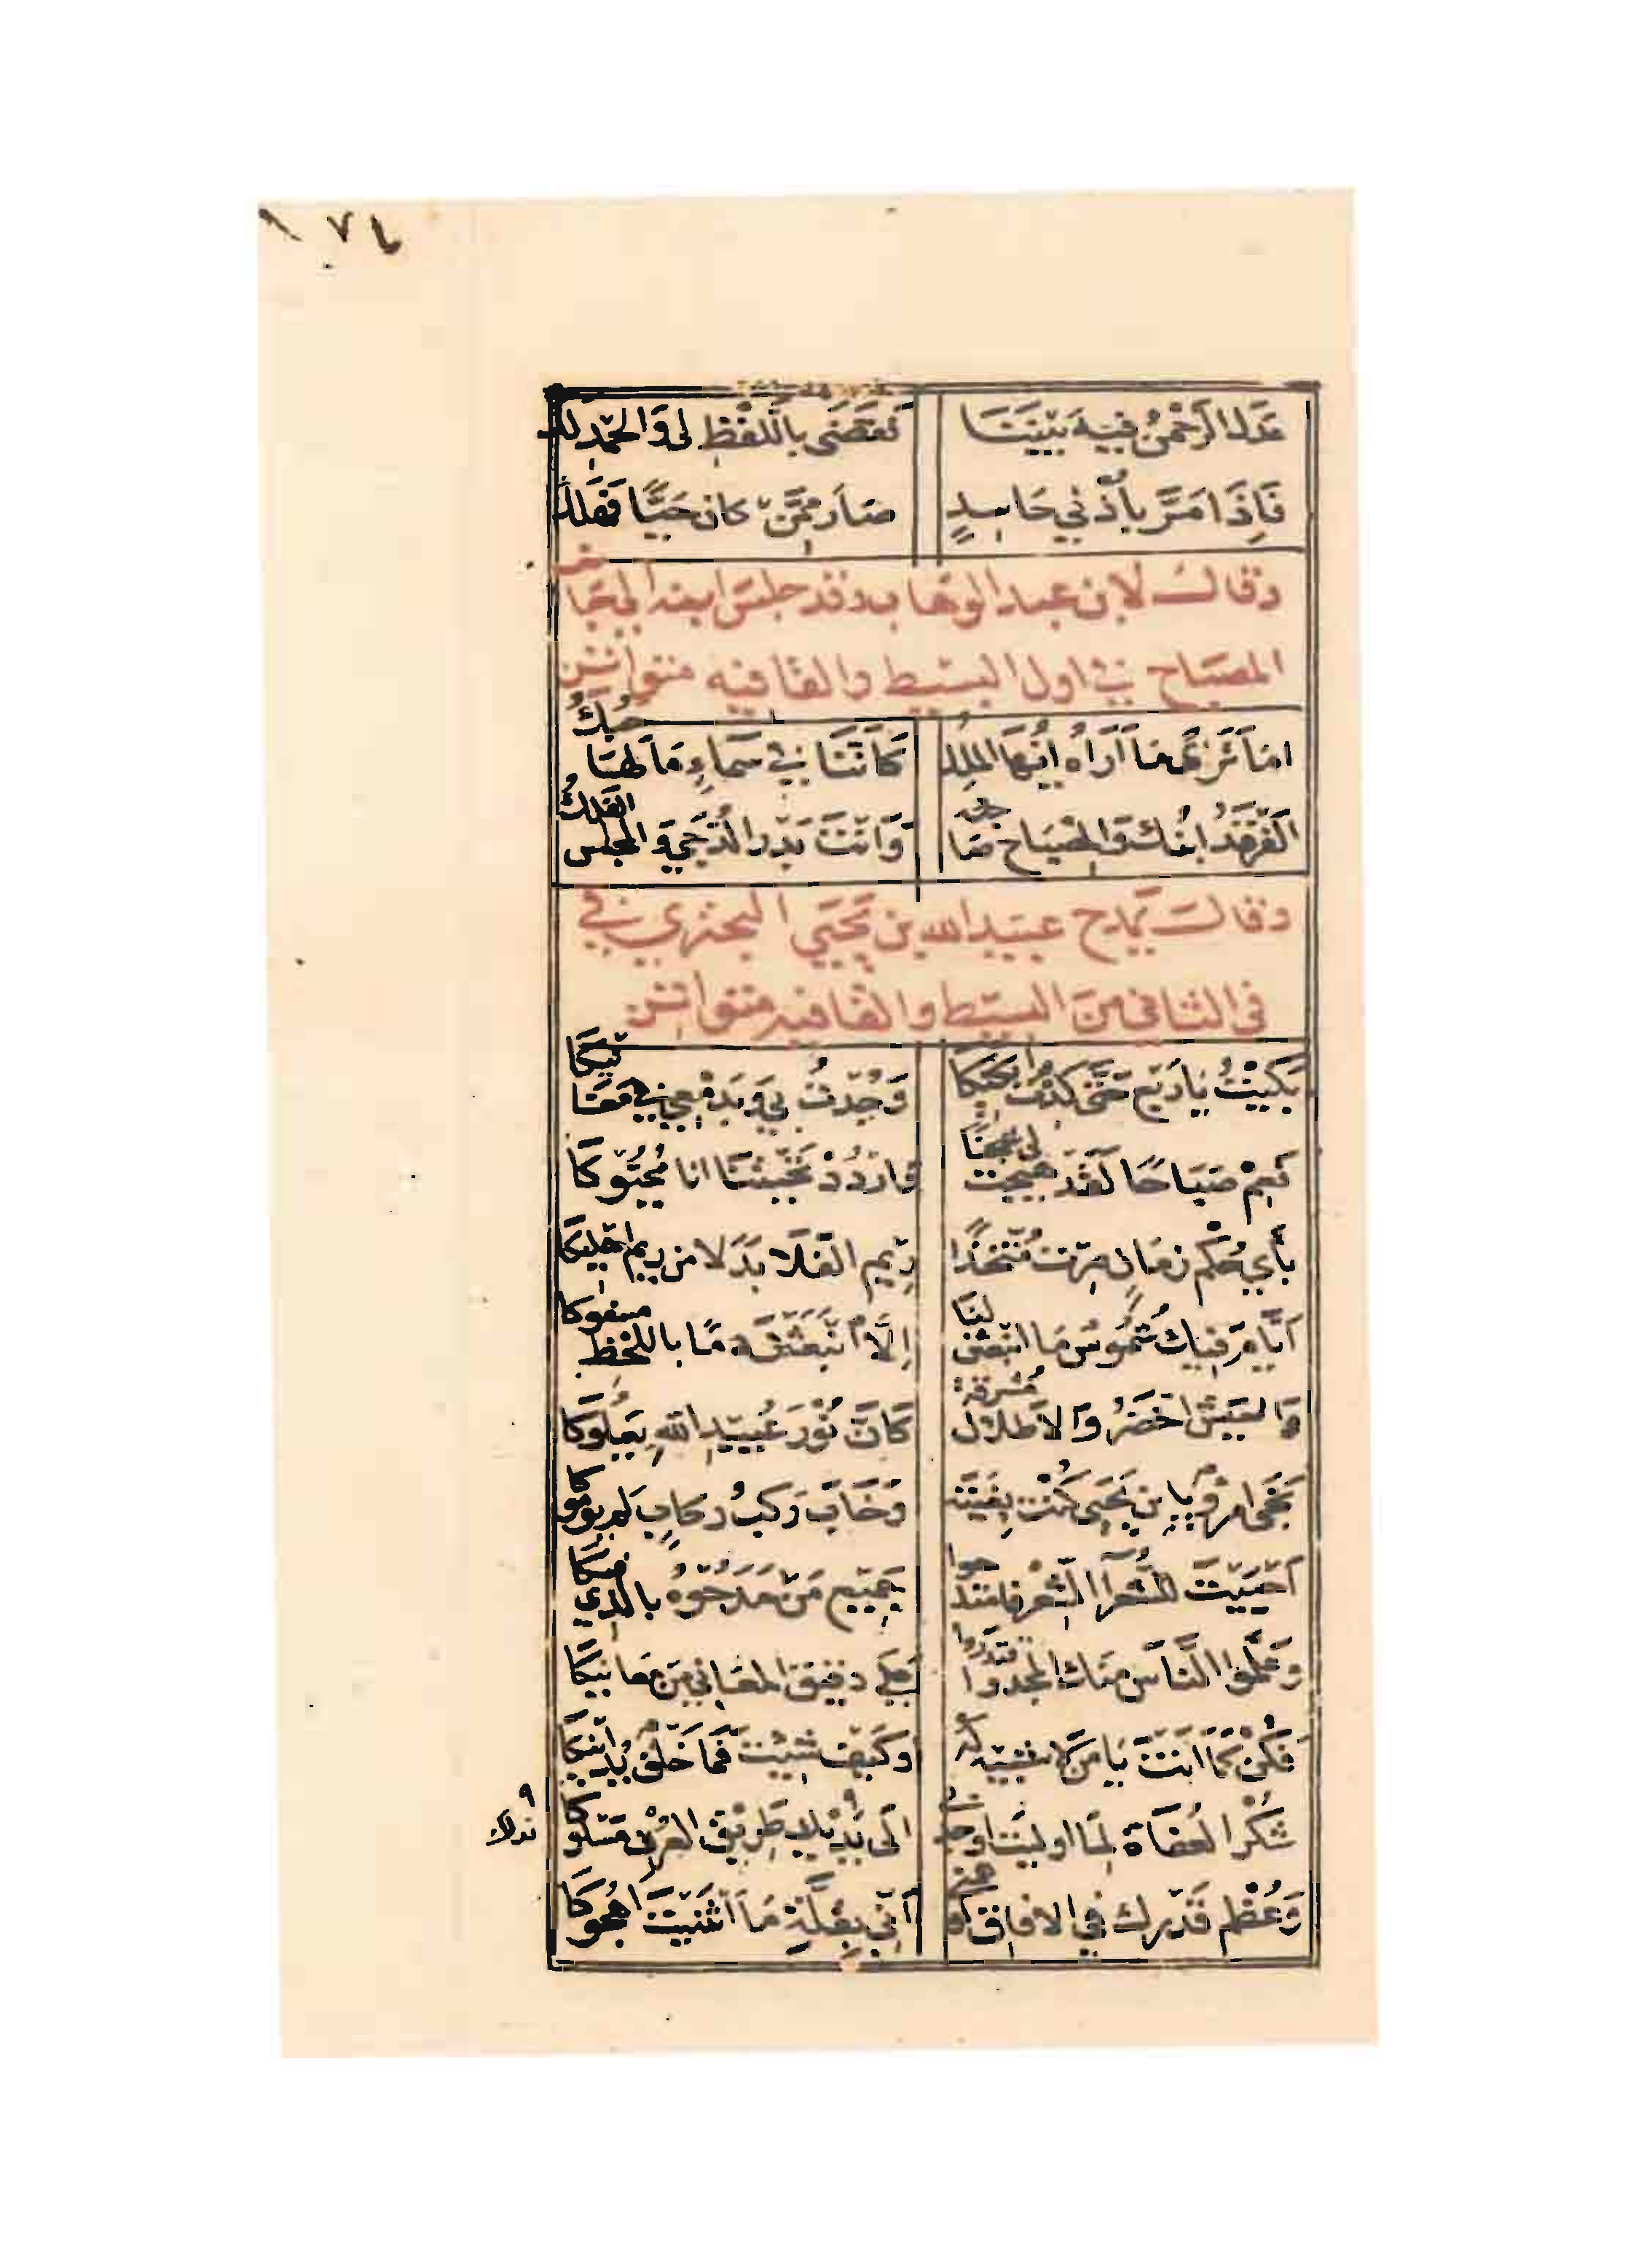 عَدَلَ الرَّحْمٰنُ فِيهِ بَيْنَنَا فَقَضَى بِاللَّفْظِ لِي وَالْحَمْدِ لَكْ
فَإِذَا مَرَّ بِأُذْنِي حَاسِدٍ صَارَ مِمَّنْ كان حَيًّا فَهَلَكْ
وقالــ لابن عبد الوهاب وقد جلس ابنه الى جَا
المصباح في اول البسيط والقافيه متواتر
امَا تَرَى مَا أَرَاهُ ايُّهَا المَلِكُ كَأَنَّنَا فِي سَمَاءٍ مَا لَهَا حُبُكُ
الفَرْقَدُ ابْنُكَ وَالمِصْبَاحُ صَاحِبُهُ وَأَنْتَ بَدْرُ الدُّجَى وَالمجلس الفَلَكُ
وقالــ يمدح عبيد الله بن يَحْيَى البحتري في
في الثاني من البسيط والقافيه متواتر
بَكَيْتُ يَا رَبْع حَتَّى كِدْتُ أبْكِيكَا وَجُدْتُ بِي وَبِدَمْعِي فِي مَغَانيكَا
فَعِمْ صَبَاحًا لَقَدْ هَيَّجْتَ لي شجَنًا وَارْدُدْ تَحِيَّتَنَا انا مُحَيُّوكَا
بِأَيِّ حُكْمِ زَمَانٍ صِرْتَ مُتَّخِذًا رِيم الفَلَا بَدَلا من رِيم اهْلِيكَا
أَيَّامَ فيكَ شُمُوسٌ مَا انبَعَثْنَ لَنَا إِلَّا انْبَعَثْنَ دَمًا باللحظ مسفوكا
وَالعَيْشُ أَخْضَرُ وَالاطلال مُشْرِقَة كَأَنَّ نُورَ عُبَيْدِ اللهِ يَعْلُوكَا
نَجَى امرؤ يا بن يَحْيَى كُنْتَ بِغْيَتَه وَخَابَ رَكْبُ ركابٍ لم يؤموكا
أَحْيَيْتَ للشُّعَرَا الشِّعْرَ فامتدحوا جَمِيعَ مَنْ مَدَحُوهُ بالذي فيكَا
وَعَلَّمُوا النَّاسَ منكَ المجد واقتدروا على دقيق المعَاني مِنْ مَعانيكَا
فَكُنْ كَمَا انْتَ يَا مَنْ لا شبيه لَه أوكَيْفَ شِئْتَ فَمَا خَلْقٌ يُدَانيكَا
شُكْرُ العُفَاةِ لِمَا اوليْتَ اوجد لي الَى يَدَيْكَ طَرِيقَ العُرْفِ مَسْلُوكَا
نداك
وَعُظْمُ قَدْرِكَ فِي الافاقِ أوهمني أَنِّي بِقِلَّةِ مَا أَثْنَيْتُ أَهْجُوكَا